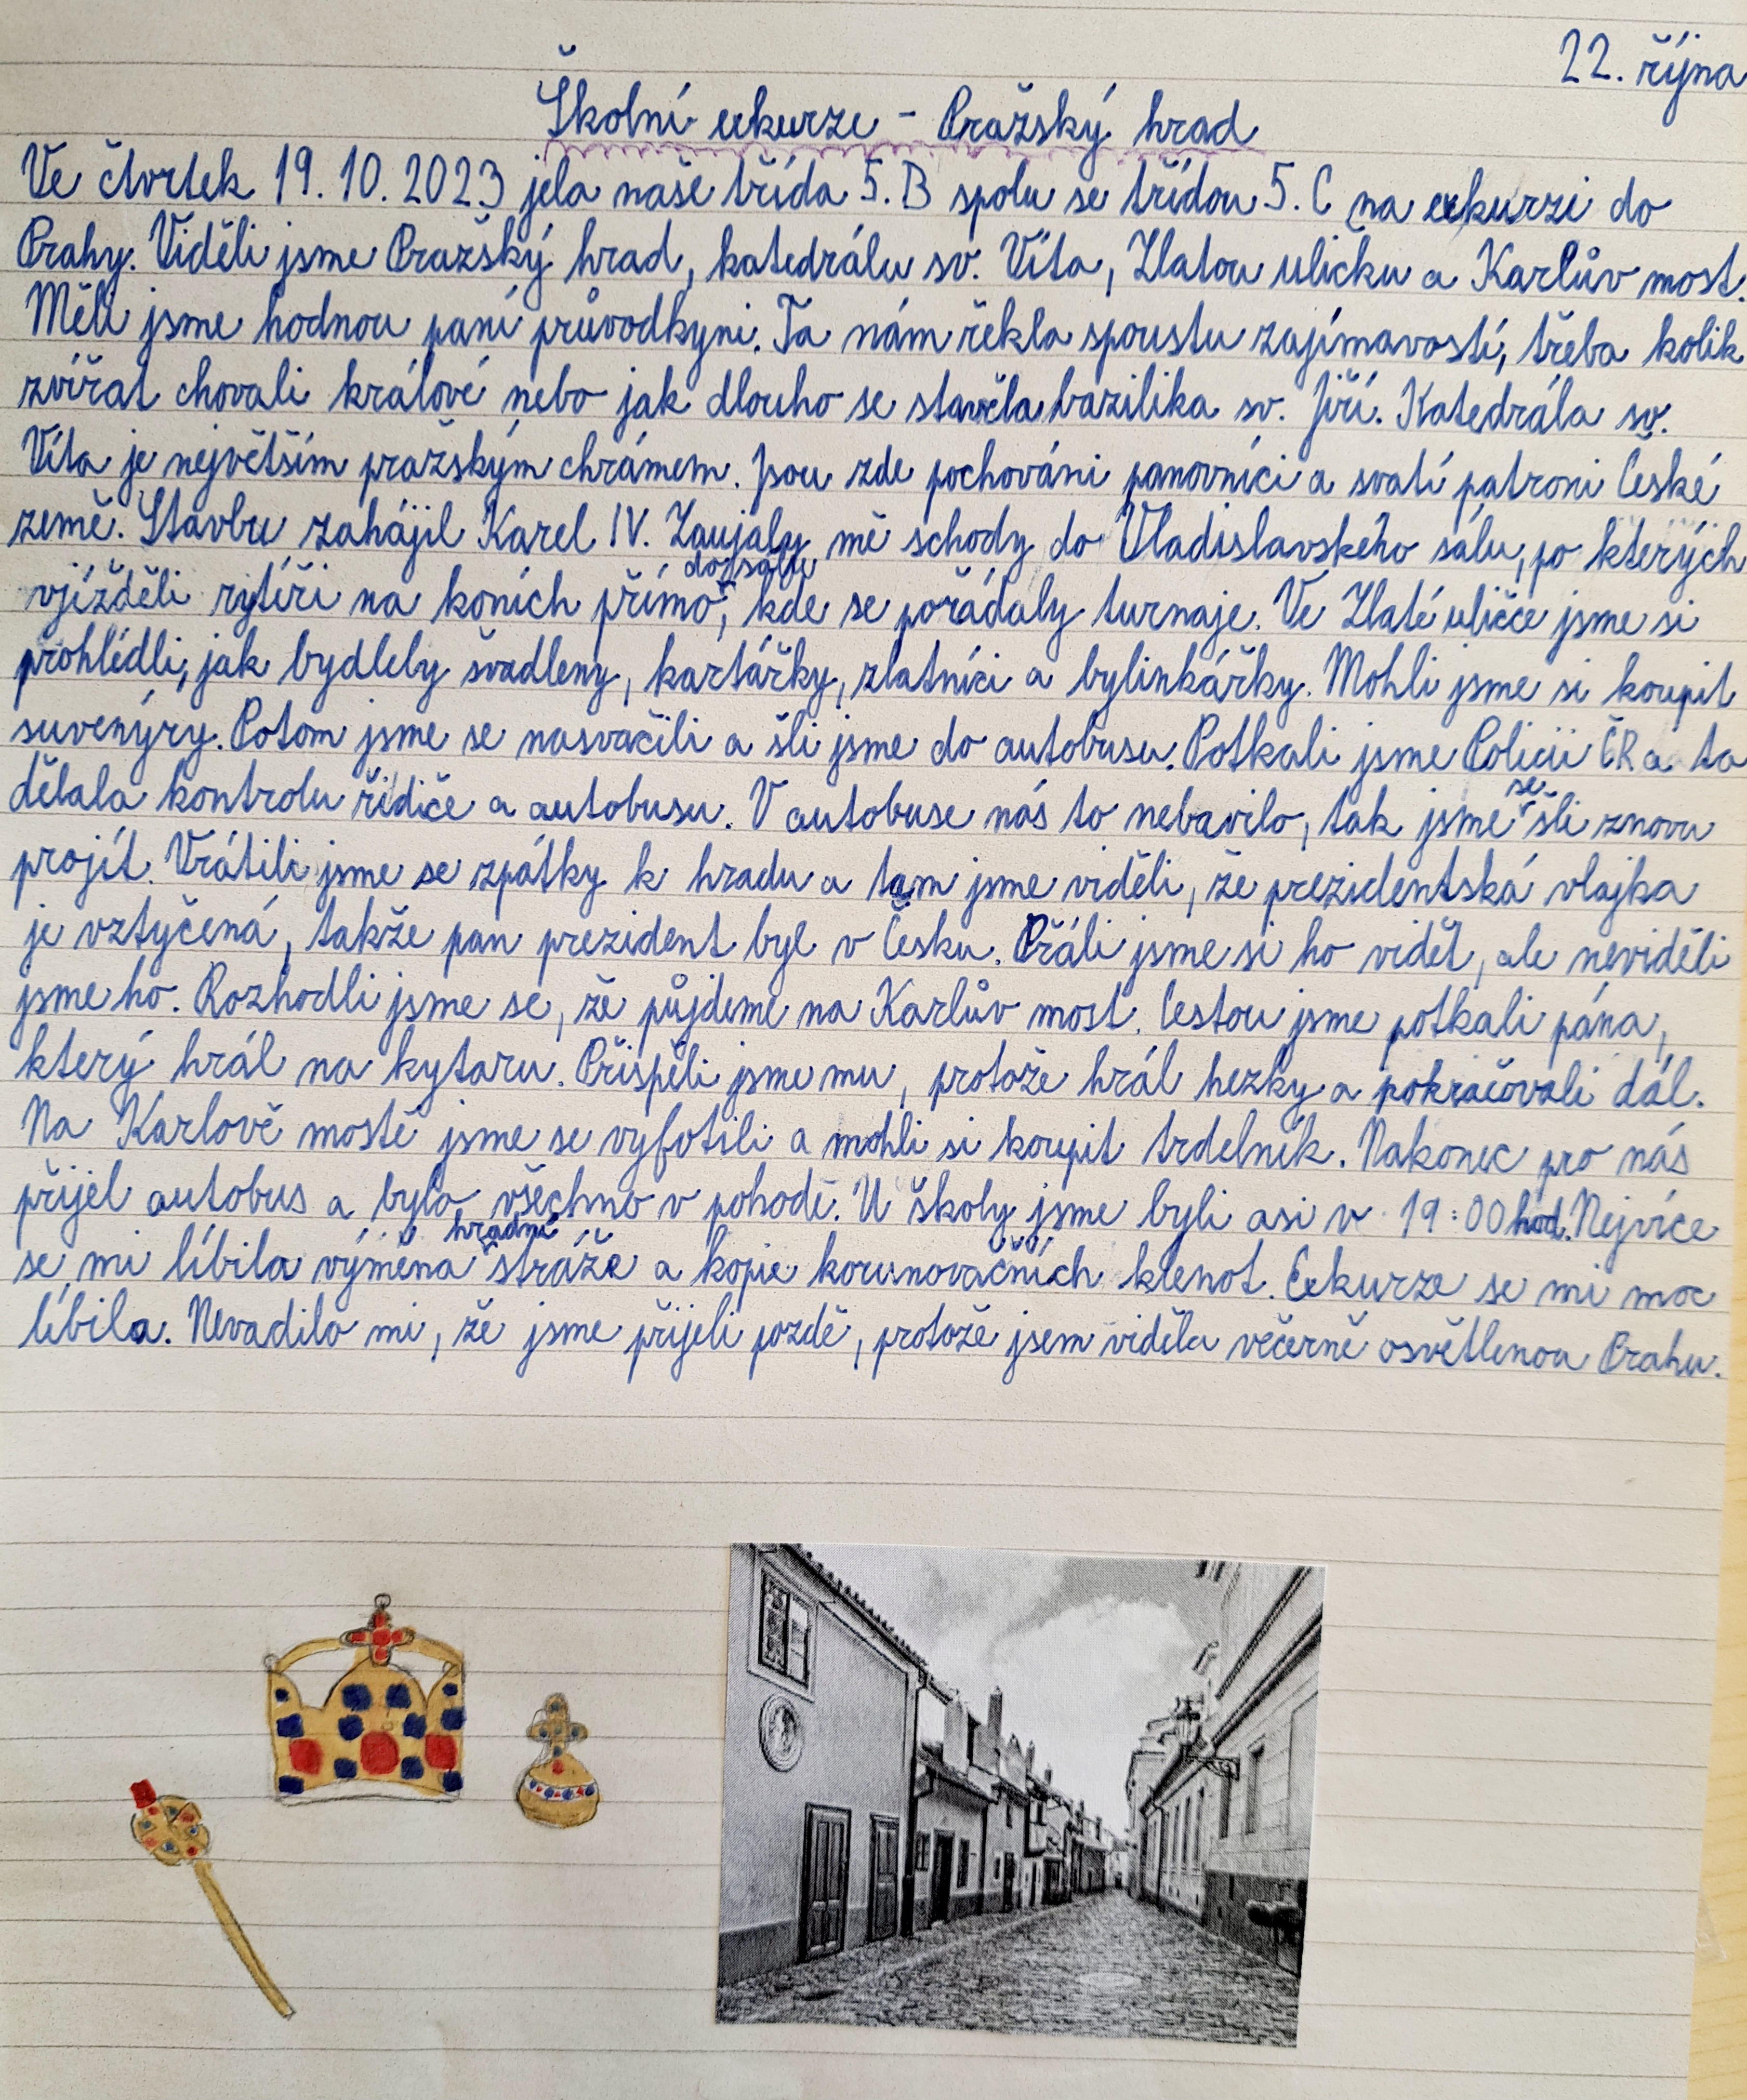 22. října
Školní exkurze - Pražský hrad
Ve čtvrtek 19. 10. 2023 jela naše třída 5. B spolu se třídou 5. C na exkurzi do
Prahy. Viděli jsme Pražský hrad, katedrálu sv. Víta, Zlatou uličku a Karlův most.
Měli jsme hodnou paní průvodkyni. Ta nám řekla spoustu zajímavostí, třeba kolik
zvířat chovali králové nebo jak dlouho se stavěla bazilika sv. Jiří. Katedrála sv.
Víta je největším pražským chrámem. Jsou zde pochováni panovníci a svatí patroni České
země. Stavbu zahájil Karel IV. Zaujaly mě schody do Vladislavského sálu, po kterých
vjížděli rytíři na koních přímo do sálu, kde se pořádaly turnaje. Ve Zlaté uličce jsme si
prohlédli, jak bydleby švadleny, kartářky, zlatníci a bylinkářky. Mohli jsme si koupit
suvenýry. Potom jsme se nasvačili a šli jsme do autobusu. Potkali jsme Policii ČR a ta
dělala kontrolu řidiče a autobusu. V autobuse nás to nebavilo, tak jsme se šli znovu
projít. Vrátili jsme se zpátky k hradu a tam jsme viděli, že prezidentská vlajka
je vztyčená, takže pan prezident byl v Česku. Přáli jsme si ho vidět, ale neviděli
jsme ho. Rozhodli jsme se, že půjdeme na Karlův most. Cestou jsme potkali pána,
který hrál na kytaru. Přispěli jsme mu, protože hrál hezky a pokračovali dál.
Na Karlově mostě jsme se vyfotili a mohli si koupit trdelník. Nakonec pro nás
přijel autobus a bylo všechno v pohodě. U školy jsme byli asi v 19:00 hod. Nejvíce
se mi líbila výměna hradní stráže a kopie korunovačních klenot. Exkurze se mi moc
líbila. Nevadilo mi, že jsme přijeli pozdě, protože jsem viděla večerně osvětlenou Prahu.